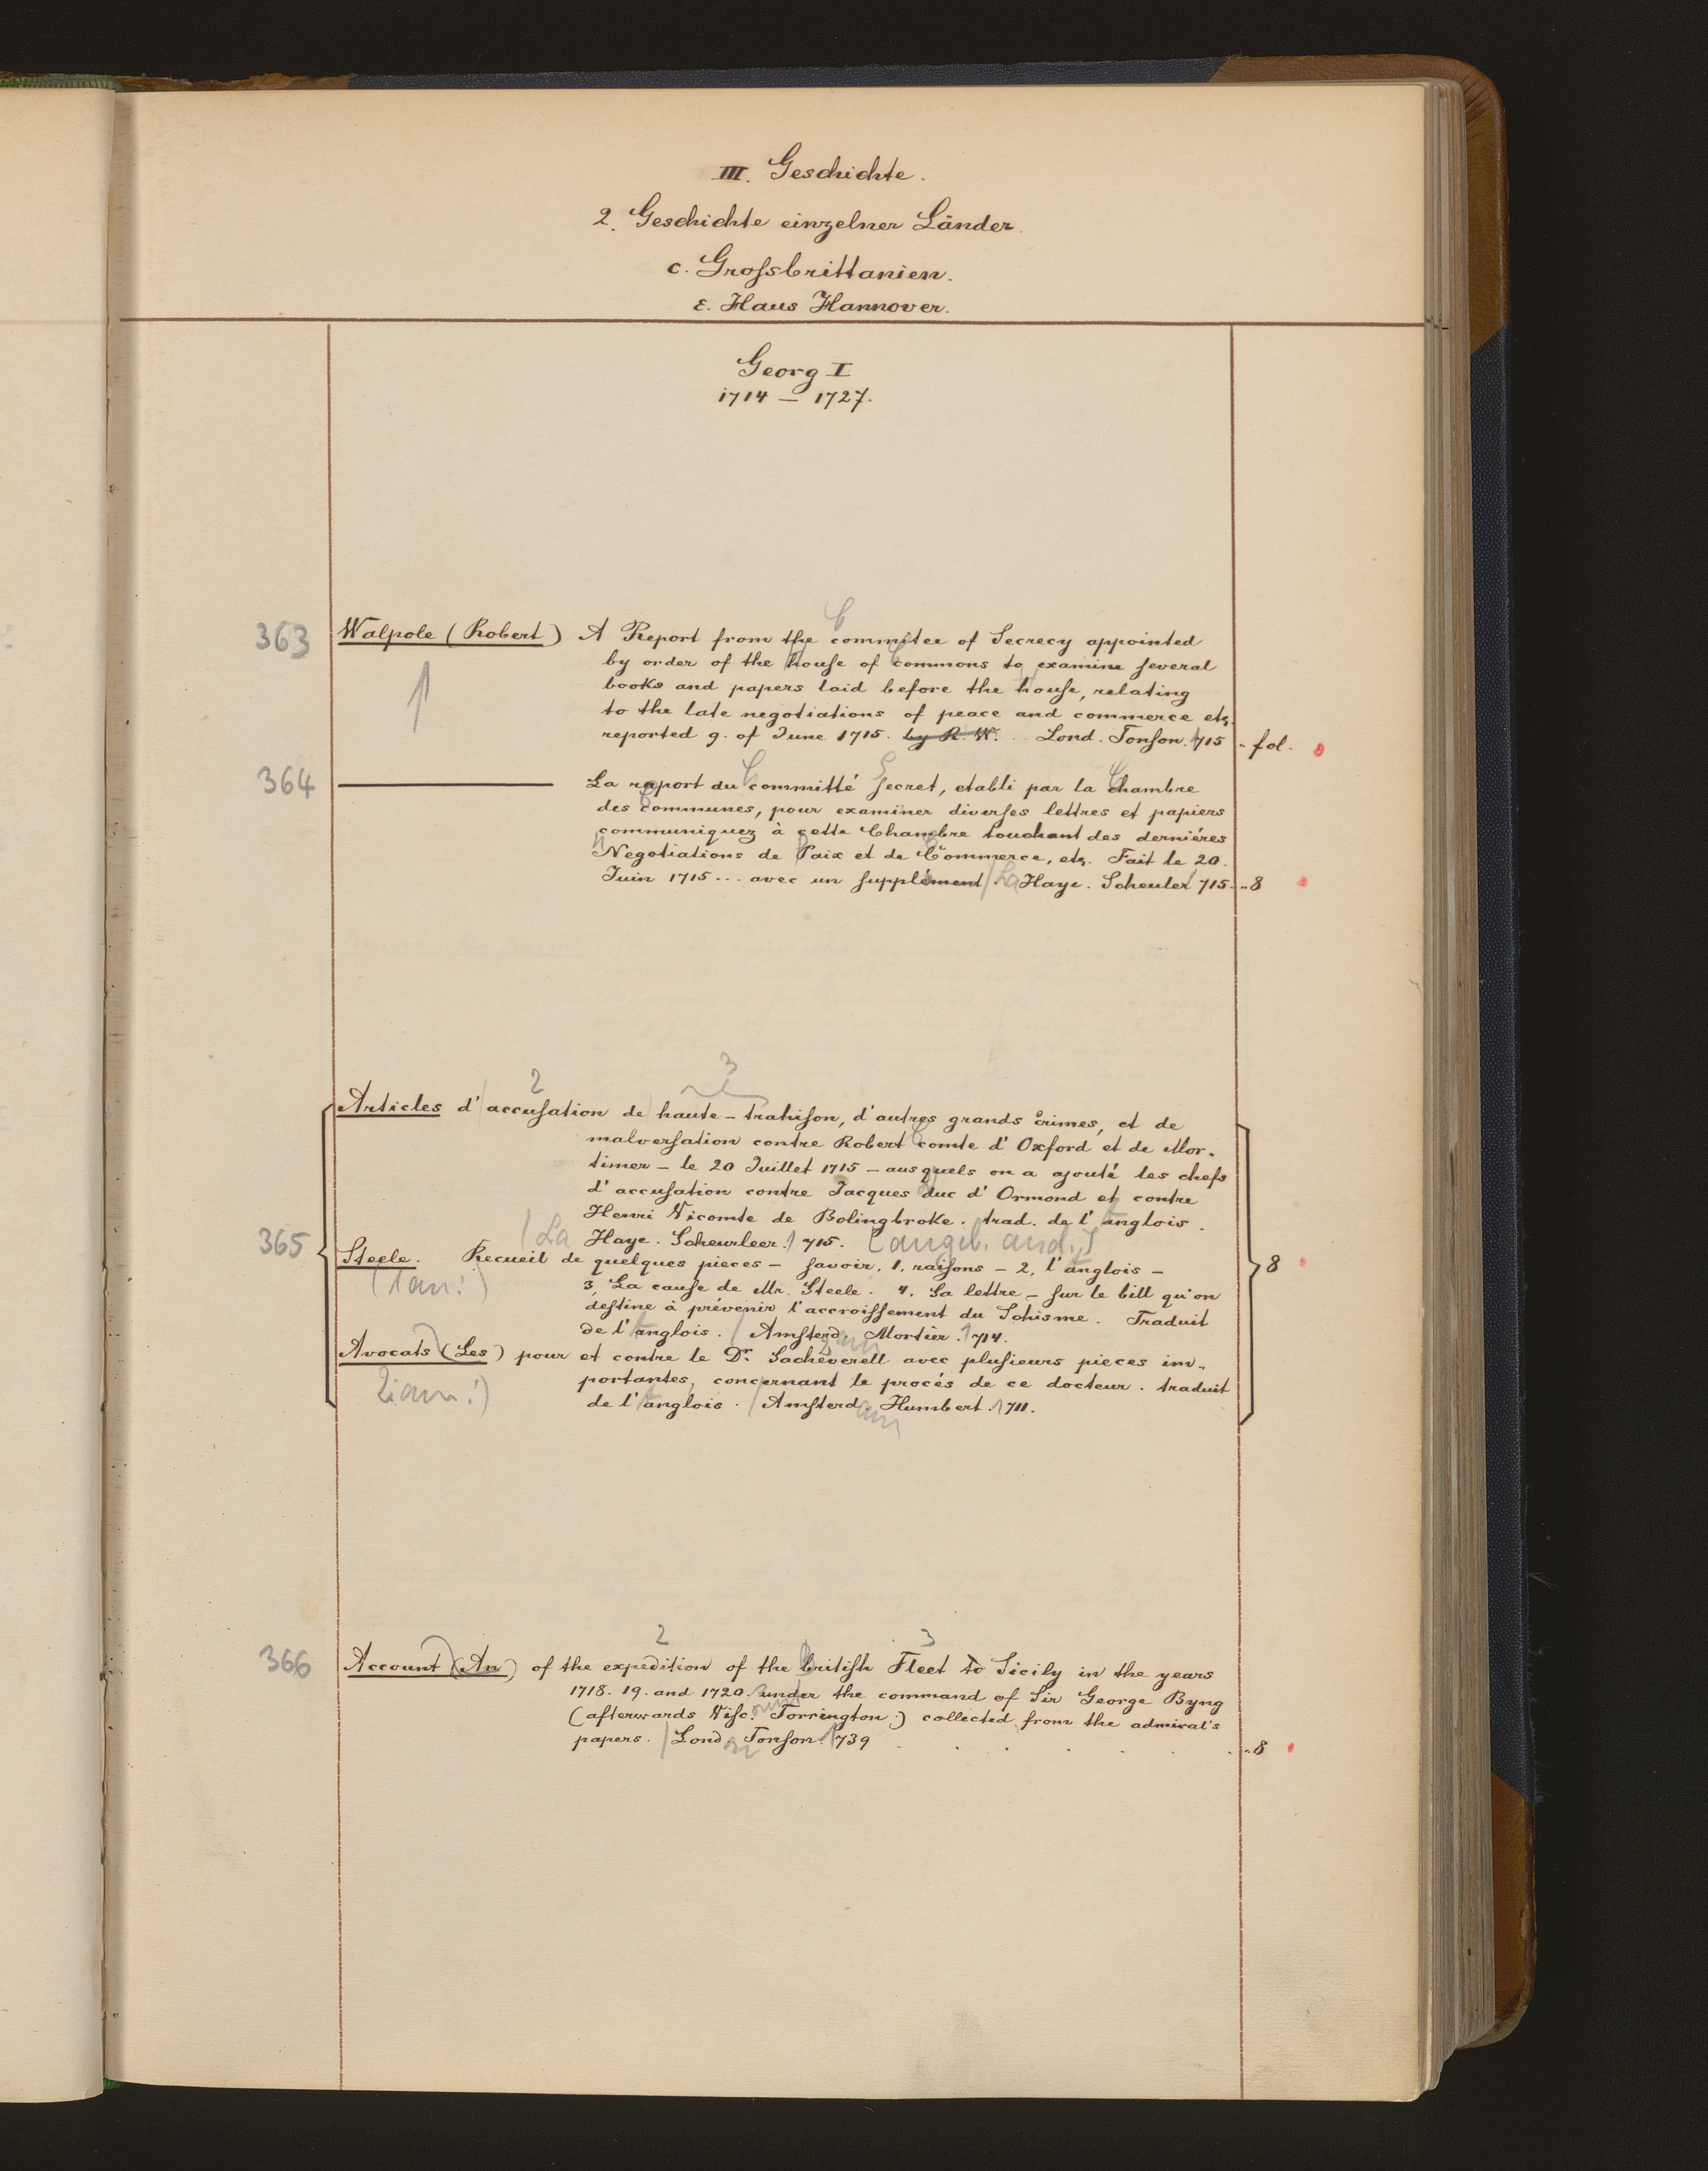 III. Geschichte.
2. Geschichte einzelner Länder.
c. Groſsbrittanien.
ε. Haus Hannover.
Georg I
1714 — 1727.
363 Walpole (Robert) A Report from the commitee of Secrecy appointed
by order of the houſe of commons to examine ſeveral
books and papers laid before the houſe, relating
to the late negotiations of peace and commerce etc.
reported 9. of June 1715. by R. W. Lond. Tonſon. 1715 fol.
364 ——— La raport du committé ſecret, etabli par la Chambre
des communes, pour examiner diverſes lettres et papiers
communiquez à cette Chambre touchant des derniéres
Negotiations de Paix et de Commerce, etc. Fait le 20.
Juin 1715... avec un ſupplément / La Haye. Scheuler 1715. 8
2 3
Articles d'accuſation de haute-trahiſon, d'autres grands crimes, et de
malverſation contre Robert comte d'Oxford et de Mor-
timer — le 20 Juillet 1715 — ausquels on a ajouté les chefs
d'accuſation contre Jacques duc d'Ormond et contre
Henri Vicomte de Bolingbroke. trad. de l'anglois.
365 / La Haye. Scheurleer. 1715. [angeb. and.] 8
Steele. Recueil de quelques pieces — ſavoir. 1. raiſons — 2. l'anglois —
(1an:) 3. La cauſe de Mr. Steele. 4. Sa lettre — ſur le bill qu'on
deſtine à prévenir l'accroiſſement du Schisme. Traduit
de l'anglois. / Amſterdam Mortier. 1714.
Avocats (Les) pour et contre le Dr. Sacheverell avec pluſieurs pieces im-
portantes, concernant le procés de ce docteur. traduit
2ian:) de l'anglois. / Amſterdam Humbert. 1711.
2 3
366 Account (An) of the expedition of the britiſh Fleet to Sicily in the years
1718. 19. and 1720. under the command of Sir George Byng
(afterwards Viſc. Torrington.) collected from the admiral's
papers. / Lond. Tonſon. 1739 8